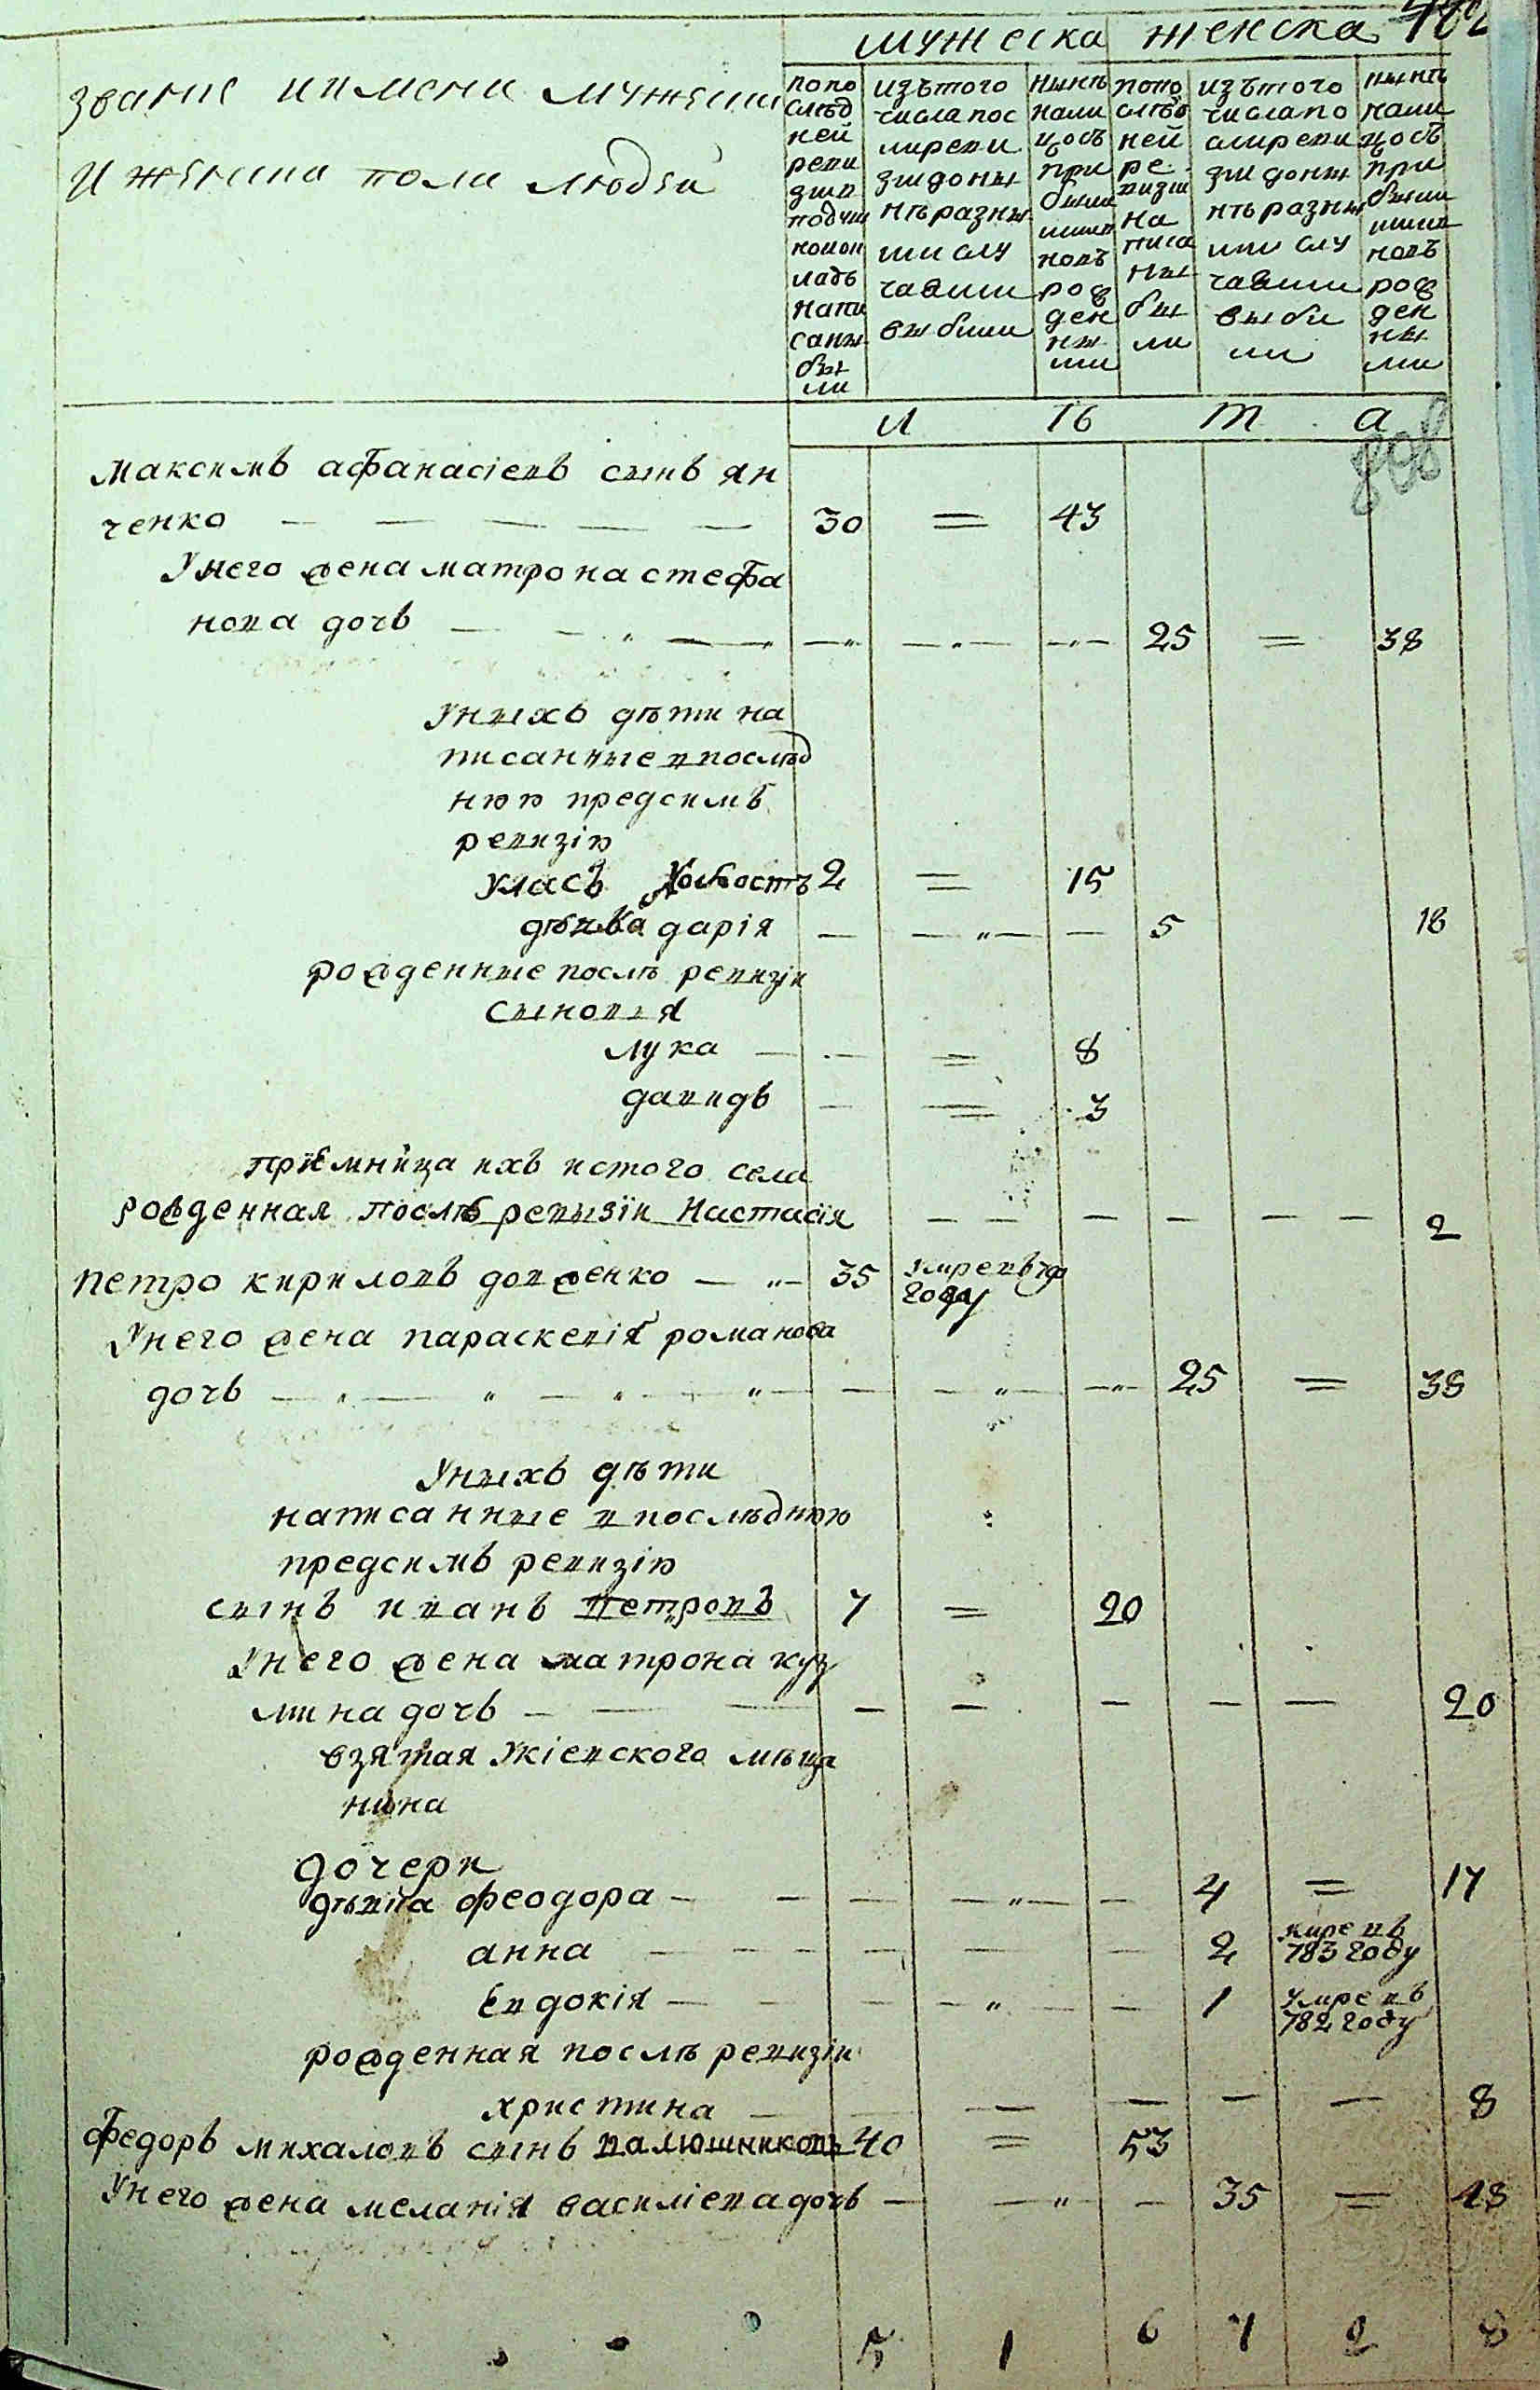 мужеска женска
звание и имена мужеска
и женска пола людей
по послѣдней ревизіи подушной окладъ написаны были
изъ того числа после ревизіи до нынѣ разными случаями выбыли
нынѣ на лицо съ прибылыми и вновь рожденными
по послѣдней ревизіи написаны были
изъ того числа после ревизіи до нынѣ разными случаями выбыли
нынѣ на лицо съ прибылыми и вновь рожденными
л ѣ т а
808
максимъ афанасіевъ сынъ ян
ченко — — — — — 30 = 43
У него жена матрона стефа
нова дочь — — — — — — 25 = 38
У ныхъ дѣти на
писанные в послѣд
нюю предсимъ
ревизію
Уласъ холостъ 2 = 15
дѣвка дарія — — — — 5 18
рожденные послѣ ревизіи
сыновья
лука — — = 8
давидъ — = 3
приемница ихъ истого села
рожденная послѣ ревызіи Настасія — — — — — — 2
петро кириловъ довженко — — 35 умре въ годау
У него жена параскевія романова
дочь — — — — — — — — 25 = 38
У ныхъ дѣти
написанные в послѣднюю
предсимъ ревизію
сынъ иванъ Петровъ 7 = 20
У него жена матрона куз
мина дочь — — — — — — — — 20
взятая У кіевского мѣща
нина
дочери
дѣвка феодора — — — — — 4 = 17
анна — — — — — — 2 умре въ 783 году
Евдокія — — — — — — 1 умре въ 782 году
рожденная послѣ ревизіи
христина — — — — — — 8
федоръ михаловъ сынъ валюшниковъ 40 = 53
У него жена меланія василіева дочь — — — 35 = 48
5 1 6 7 2 8